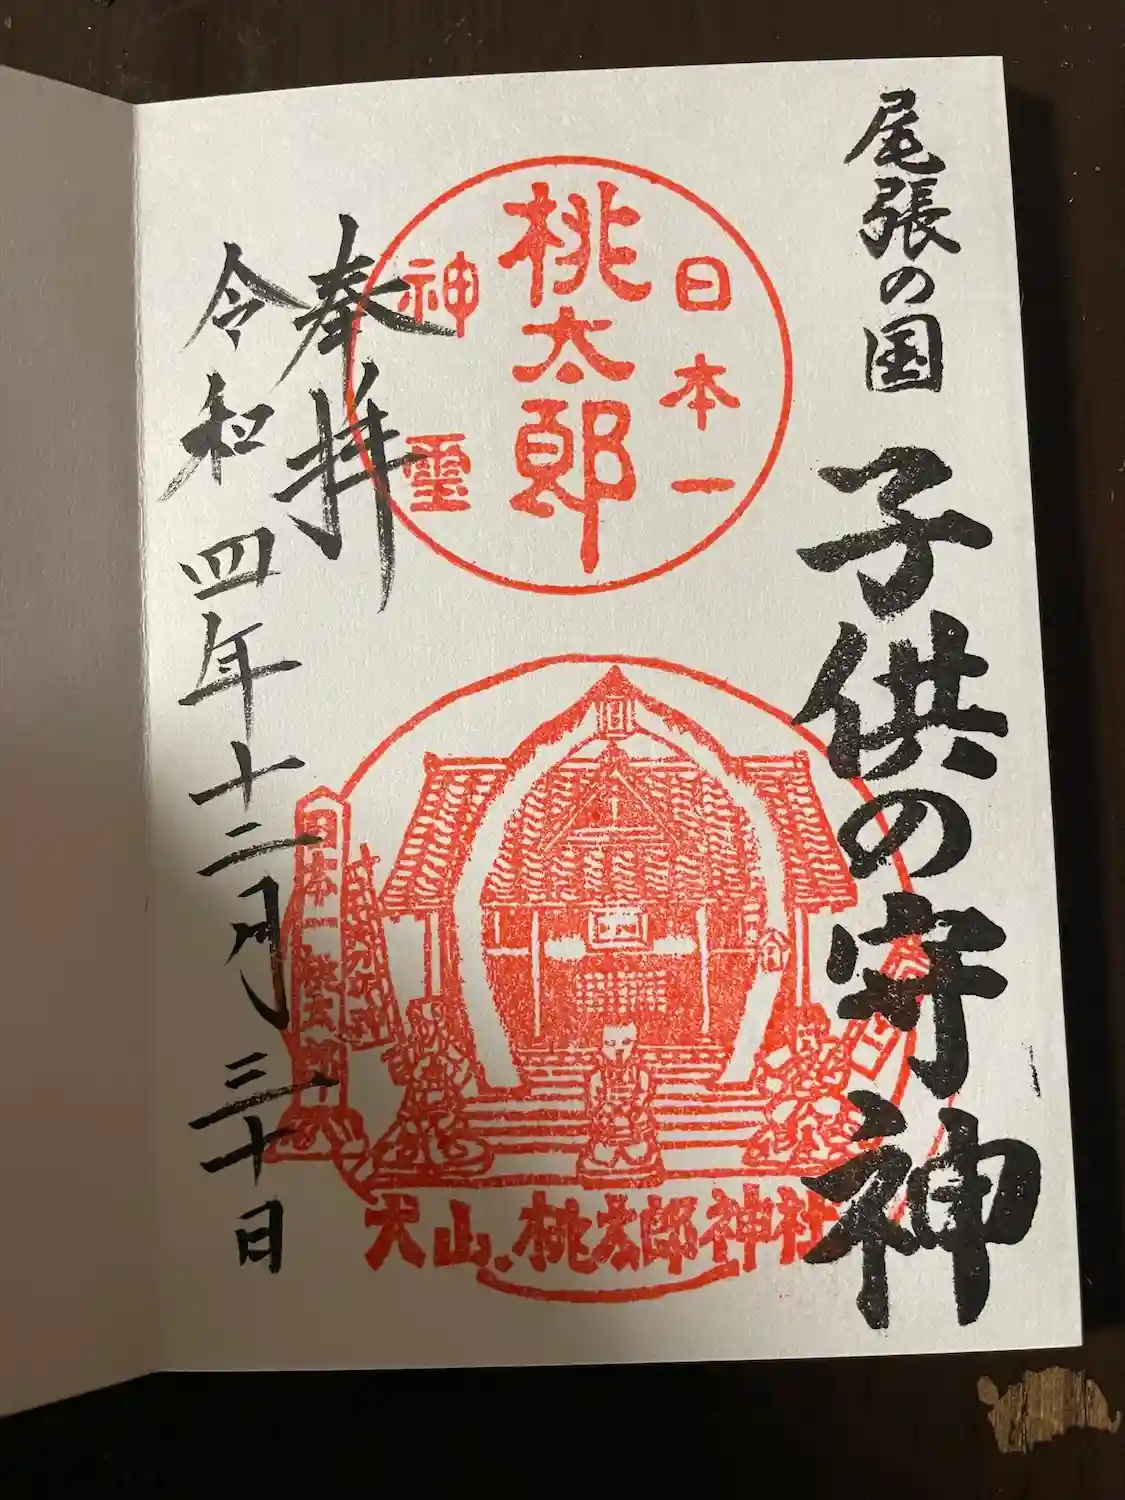 尾張の国
子供の守神
日本一
桃太郎
神霊
奉拝
令和四年十二月三十日
日本一桃太郎
犬山、桃太郎神社